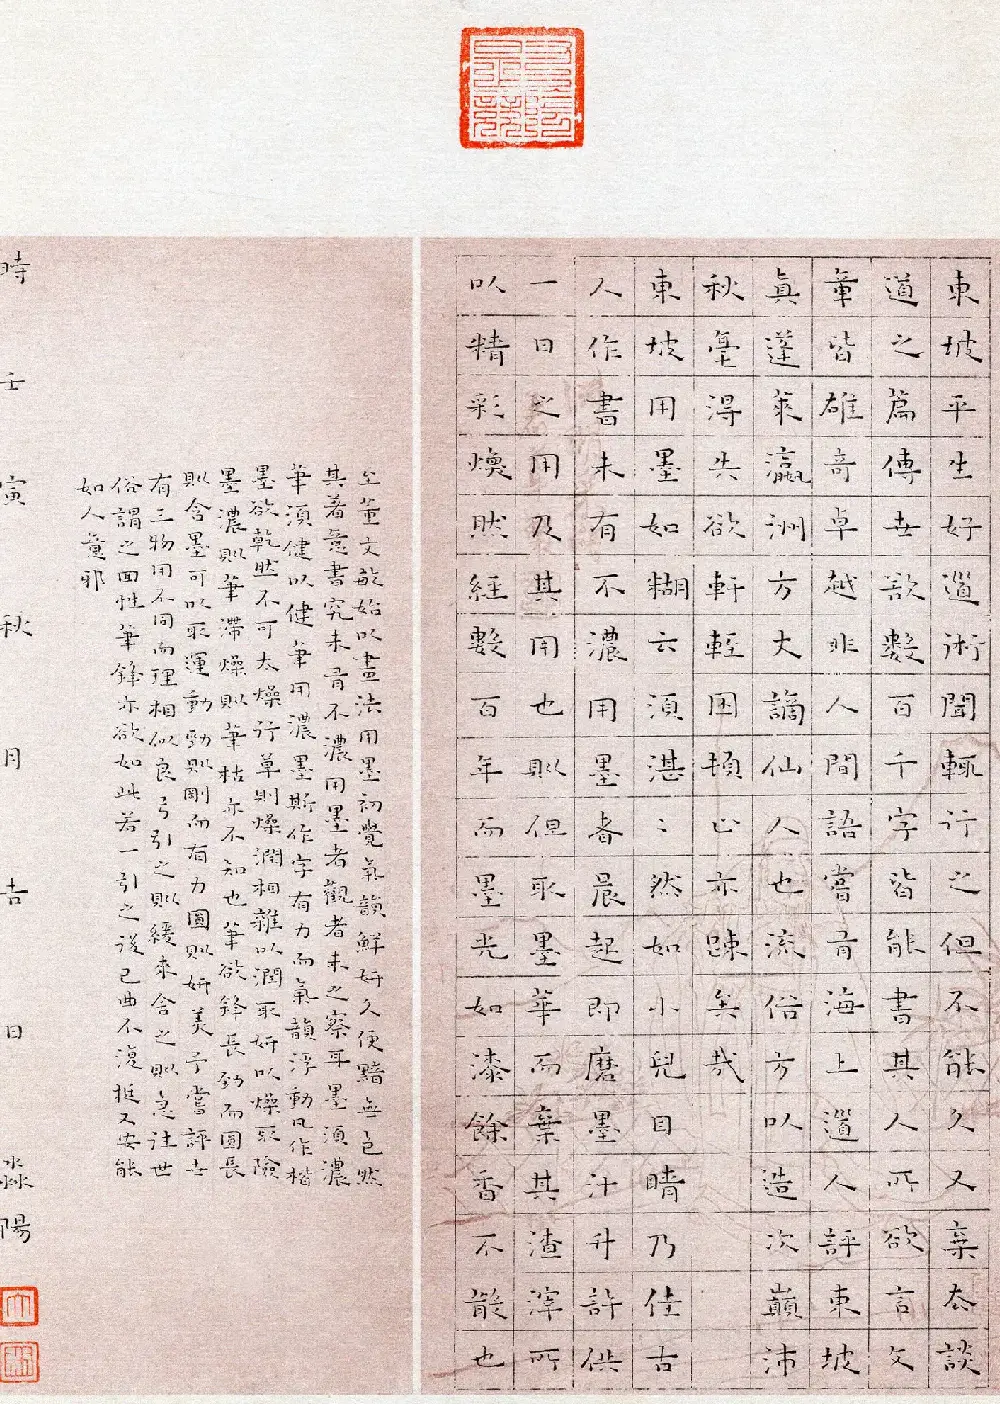 東坡平生好道術聞輒行之但不能久又棄厺談
道之篇傳世欲數百千字皆能書其人所欲言文
章皆雄奇卓越非人間語嘗有海上道人評東坡
真蓬萊瀛洲方丈謫仙人也流俗方以造次顛沛
秋毫得失欲軒輊困頓之亦踈矣哉
東坡用墨如糊云須湛〻然如小兒目睛乃佳古
人作書未有不濃用墨者晨起即磨墨汁升許供
一日之用及其用也則但取墨華而棄其渣滓所
以精彩煥然經數百年而墨光如漆餘香不散也
至董文敏始以畫法用墨初覺氣韻鮮妍久便黯無色然
其著意書究未有不濃用墨者觀者未之察耳墨須濃
筆須健以健筆用濃墨斯作字有力而氣韻浮動凡作楷
墨欲乾然不可太燥行草則燥潤相雜以潤取妍以燥取險
墨濃則筆滯燥則筆枯亦不知也筆欲鋒長勁而圓長
則含墨可以取運動勁則剛而有力圓則妍美予嘗評世
有三物用不同而理相似良弓引之則緩來舍之則急往世
俗謂之面性筆鋒亦欲如此若一引之後已曲不復挺又安能
如人意邪
時壬寅秋月吉日淼陽